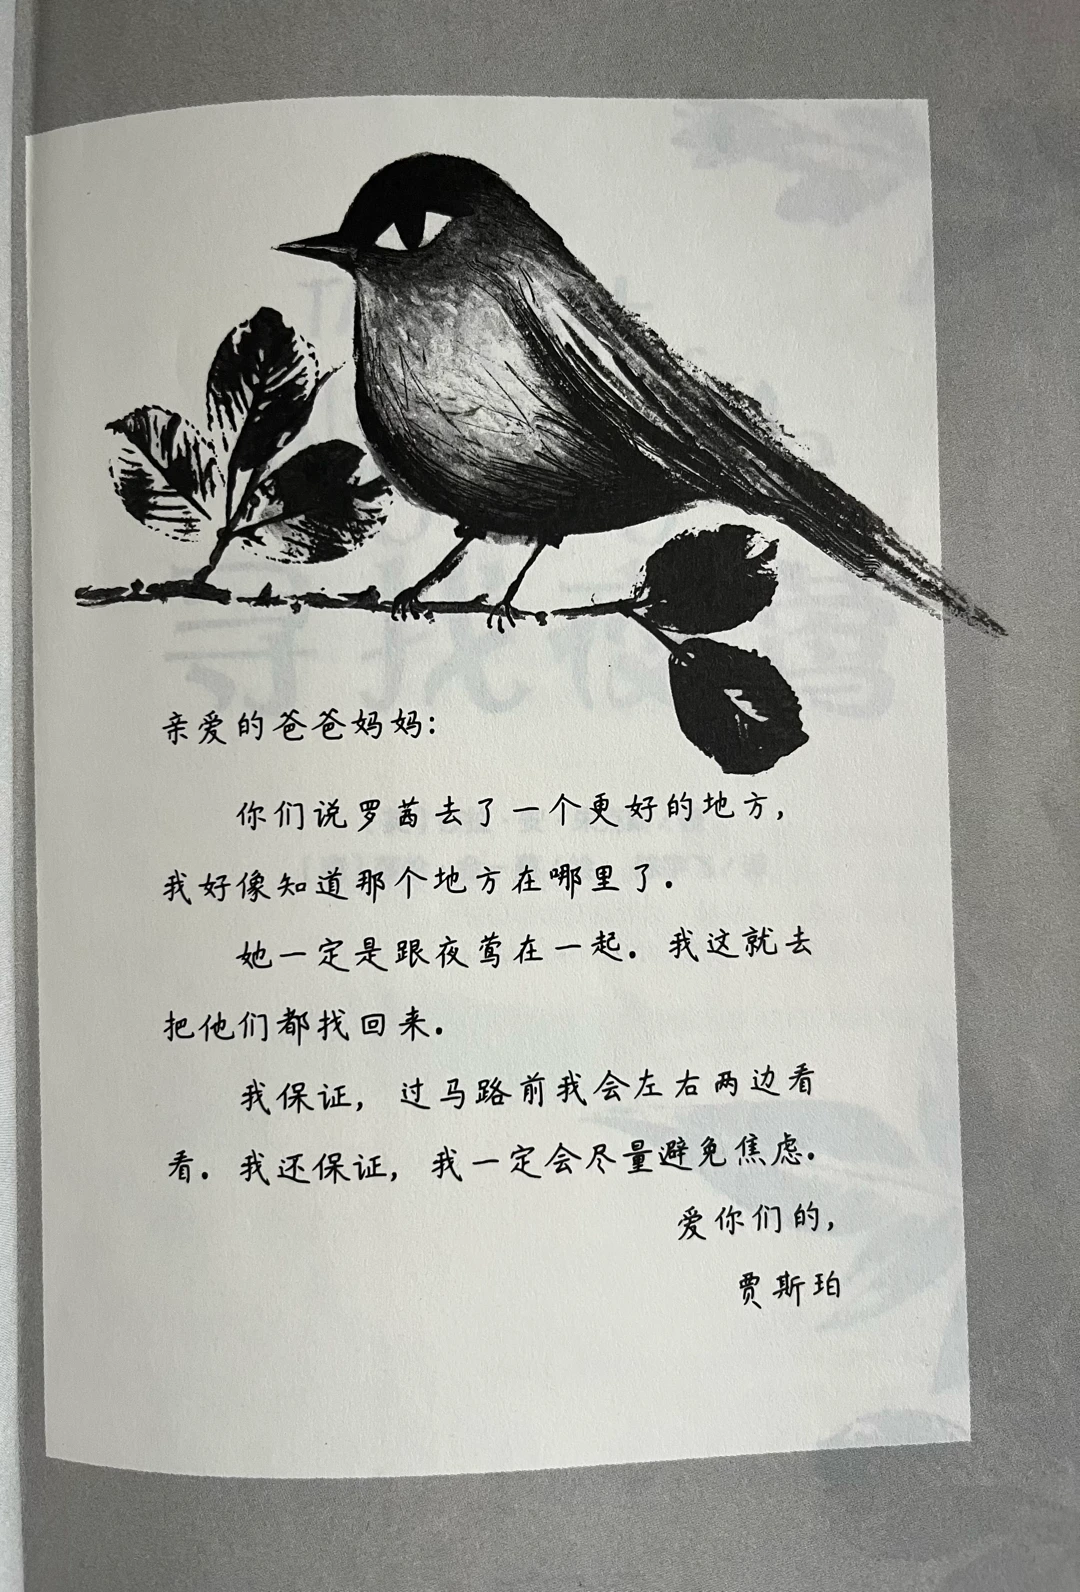 亲爱的爸爸妈妈：
你们说罗茜去了一个更好的地方，
我好像知道那个地方在哪里了。
她一定是跟夜莺在一起。我这就去
把他们都找回来。
我保证，过马路前我会左右两边看
看。我还保证，我一定会尽量避免焦虑。
爱你们的，
贾斯珀